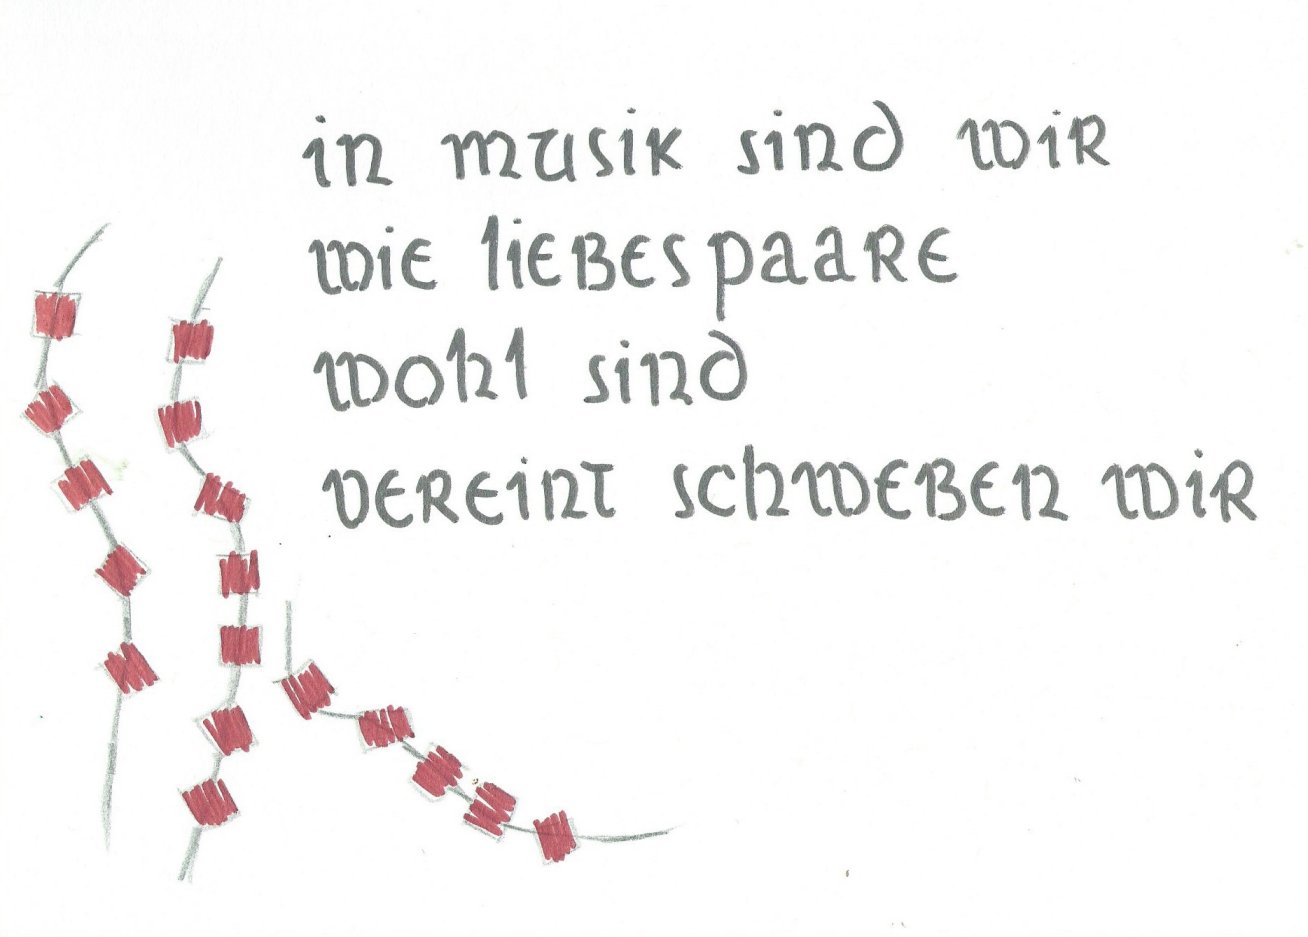 in musik sind wir
wie liebespaare
wohl sind
vereint schweben wir